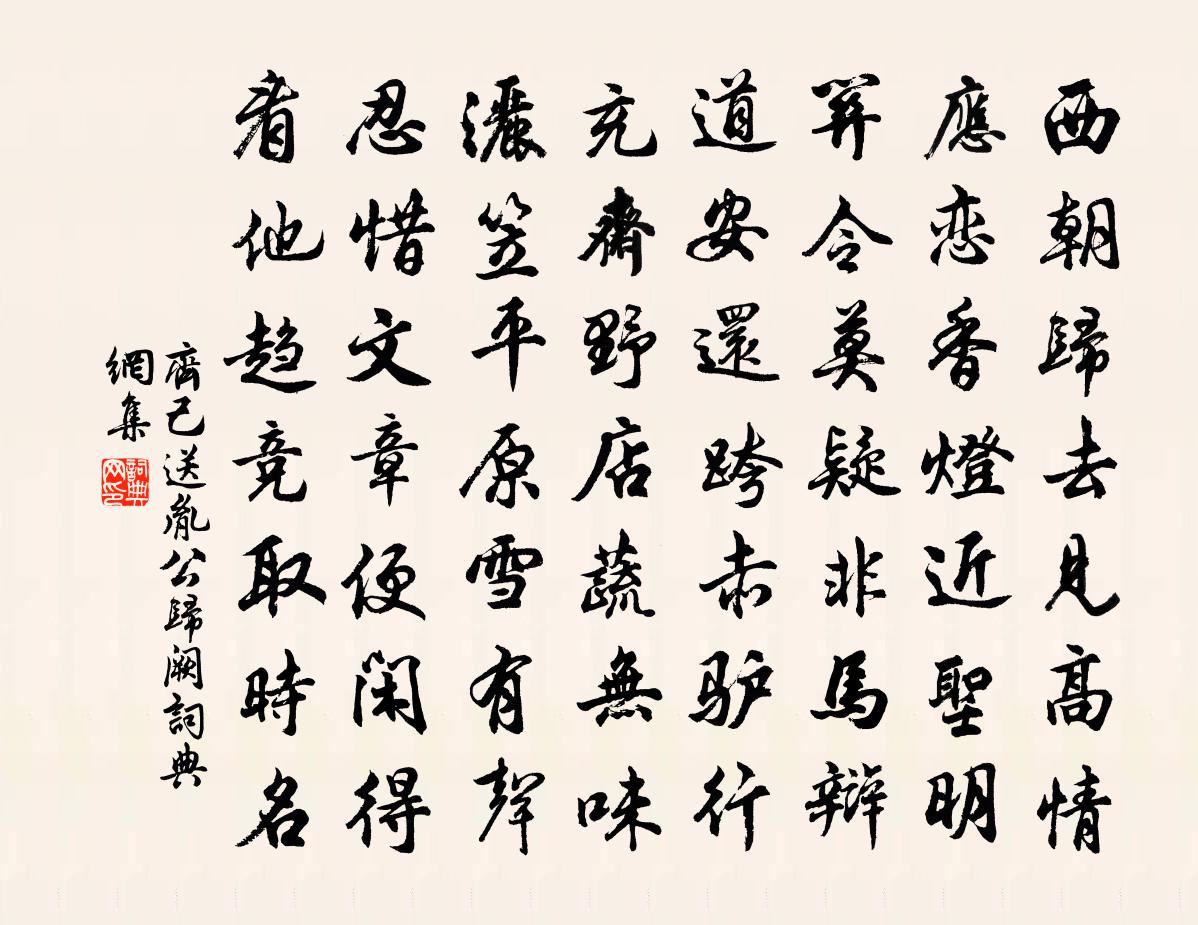 西朝歸去見高情
應恋香燈近聖明
關令莫疑非馬辯
道安還跨赤驴行
充齋野店蔬無味
灑笠平原雪有聲
忍惜文章便闲得
看他趋竞取時名
齊己送胤公歸阙詞典
網集
詞典
网印